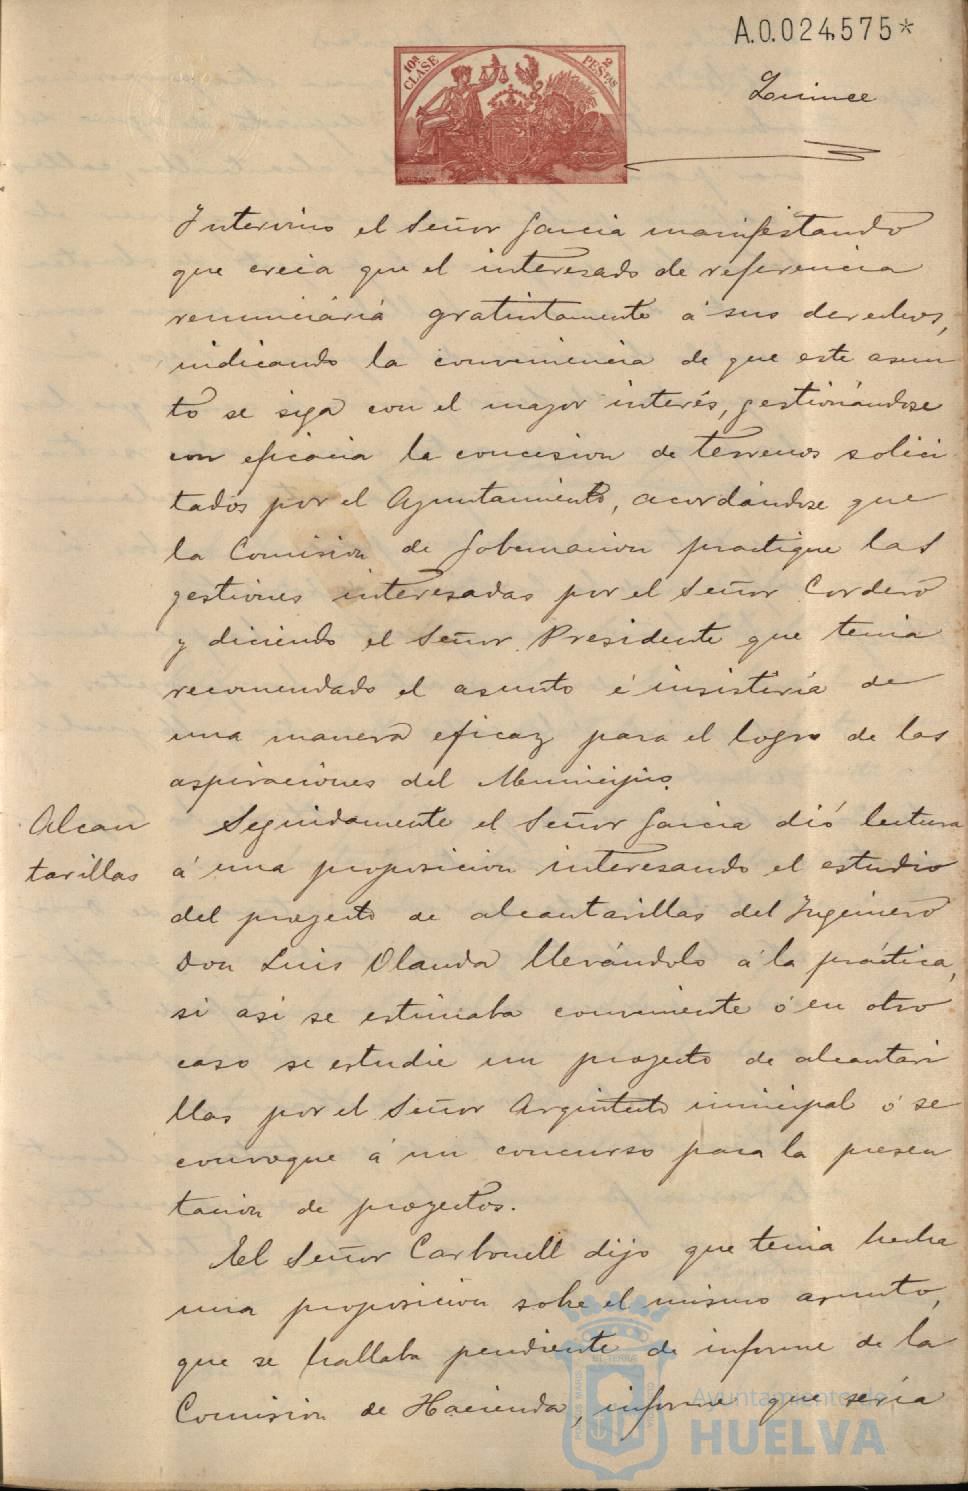 A.0.024,575*
10ª CLASE
2 PESTAS
Quince
Intervino el Señor Garcia manifestando
que creia que el interesado de referencia
renunciariá gratuitamente á sus derechos,
indicando la conveniencia de que este asun
to se siga con el mayor interés, gestionándose
con eficacia la concesion de terrenos solici
tados por el Ayuntamiento, acordándose que
la Comision de Gobernacion practique las
gestiones interesadas por el Señor Cordero
y diciendo el Señor Presidente que tenia
recomendado el asunto é insistiria de
una manera eficaz para el logro de las
aspiraciones del Municipio.
Alcan
tarillas
Seguidamente el Señor Garcia dió lectura
á una proposicion interesando el estudio
del proyecto de alcantarillas del Ingeniero
Don Luis Olanda llevándolo á la práctica,
si asi se estimaba conveniente ó en otro
caso se estudie un proyecto de alcantari
llas por el Señor Arquitecto municipal ó se
convoque á un concurso para la presen
tacion de proyectos.
El Señor Carbonell dijo que tenia hecha
una proposicion sobre el mismo asunto,
que se hallaba pendiente de informe de la
Comision de Hacienda, informe que seria
Ayuntamiento de
HUELVA